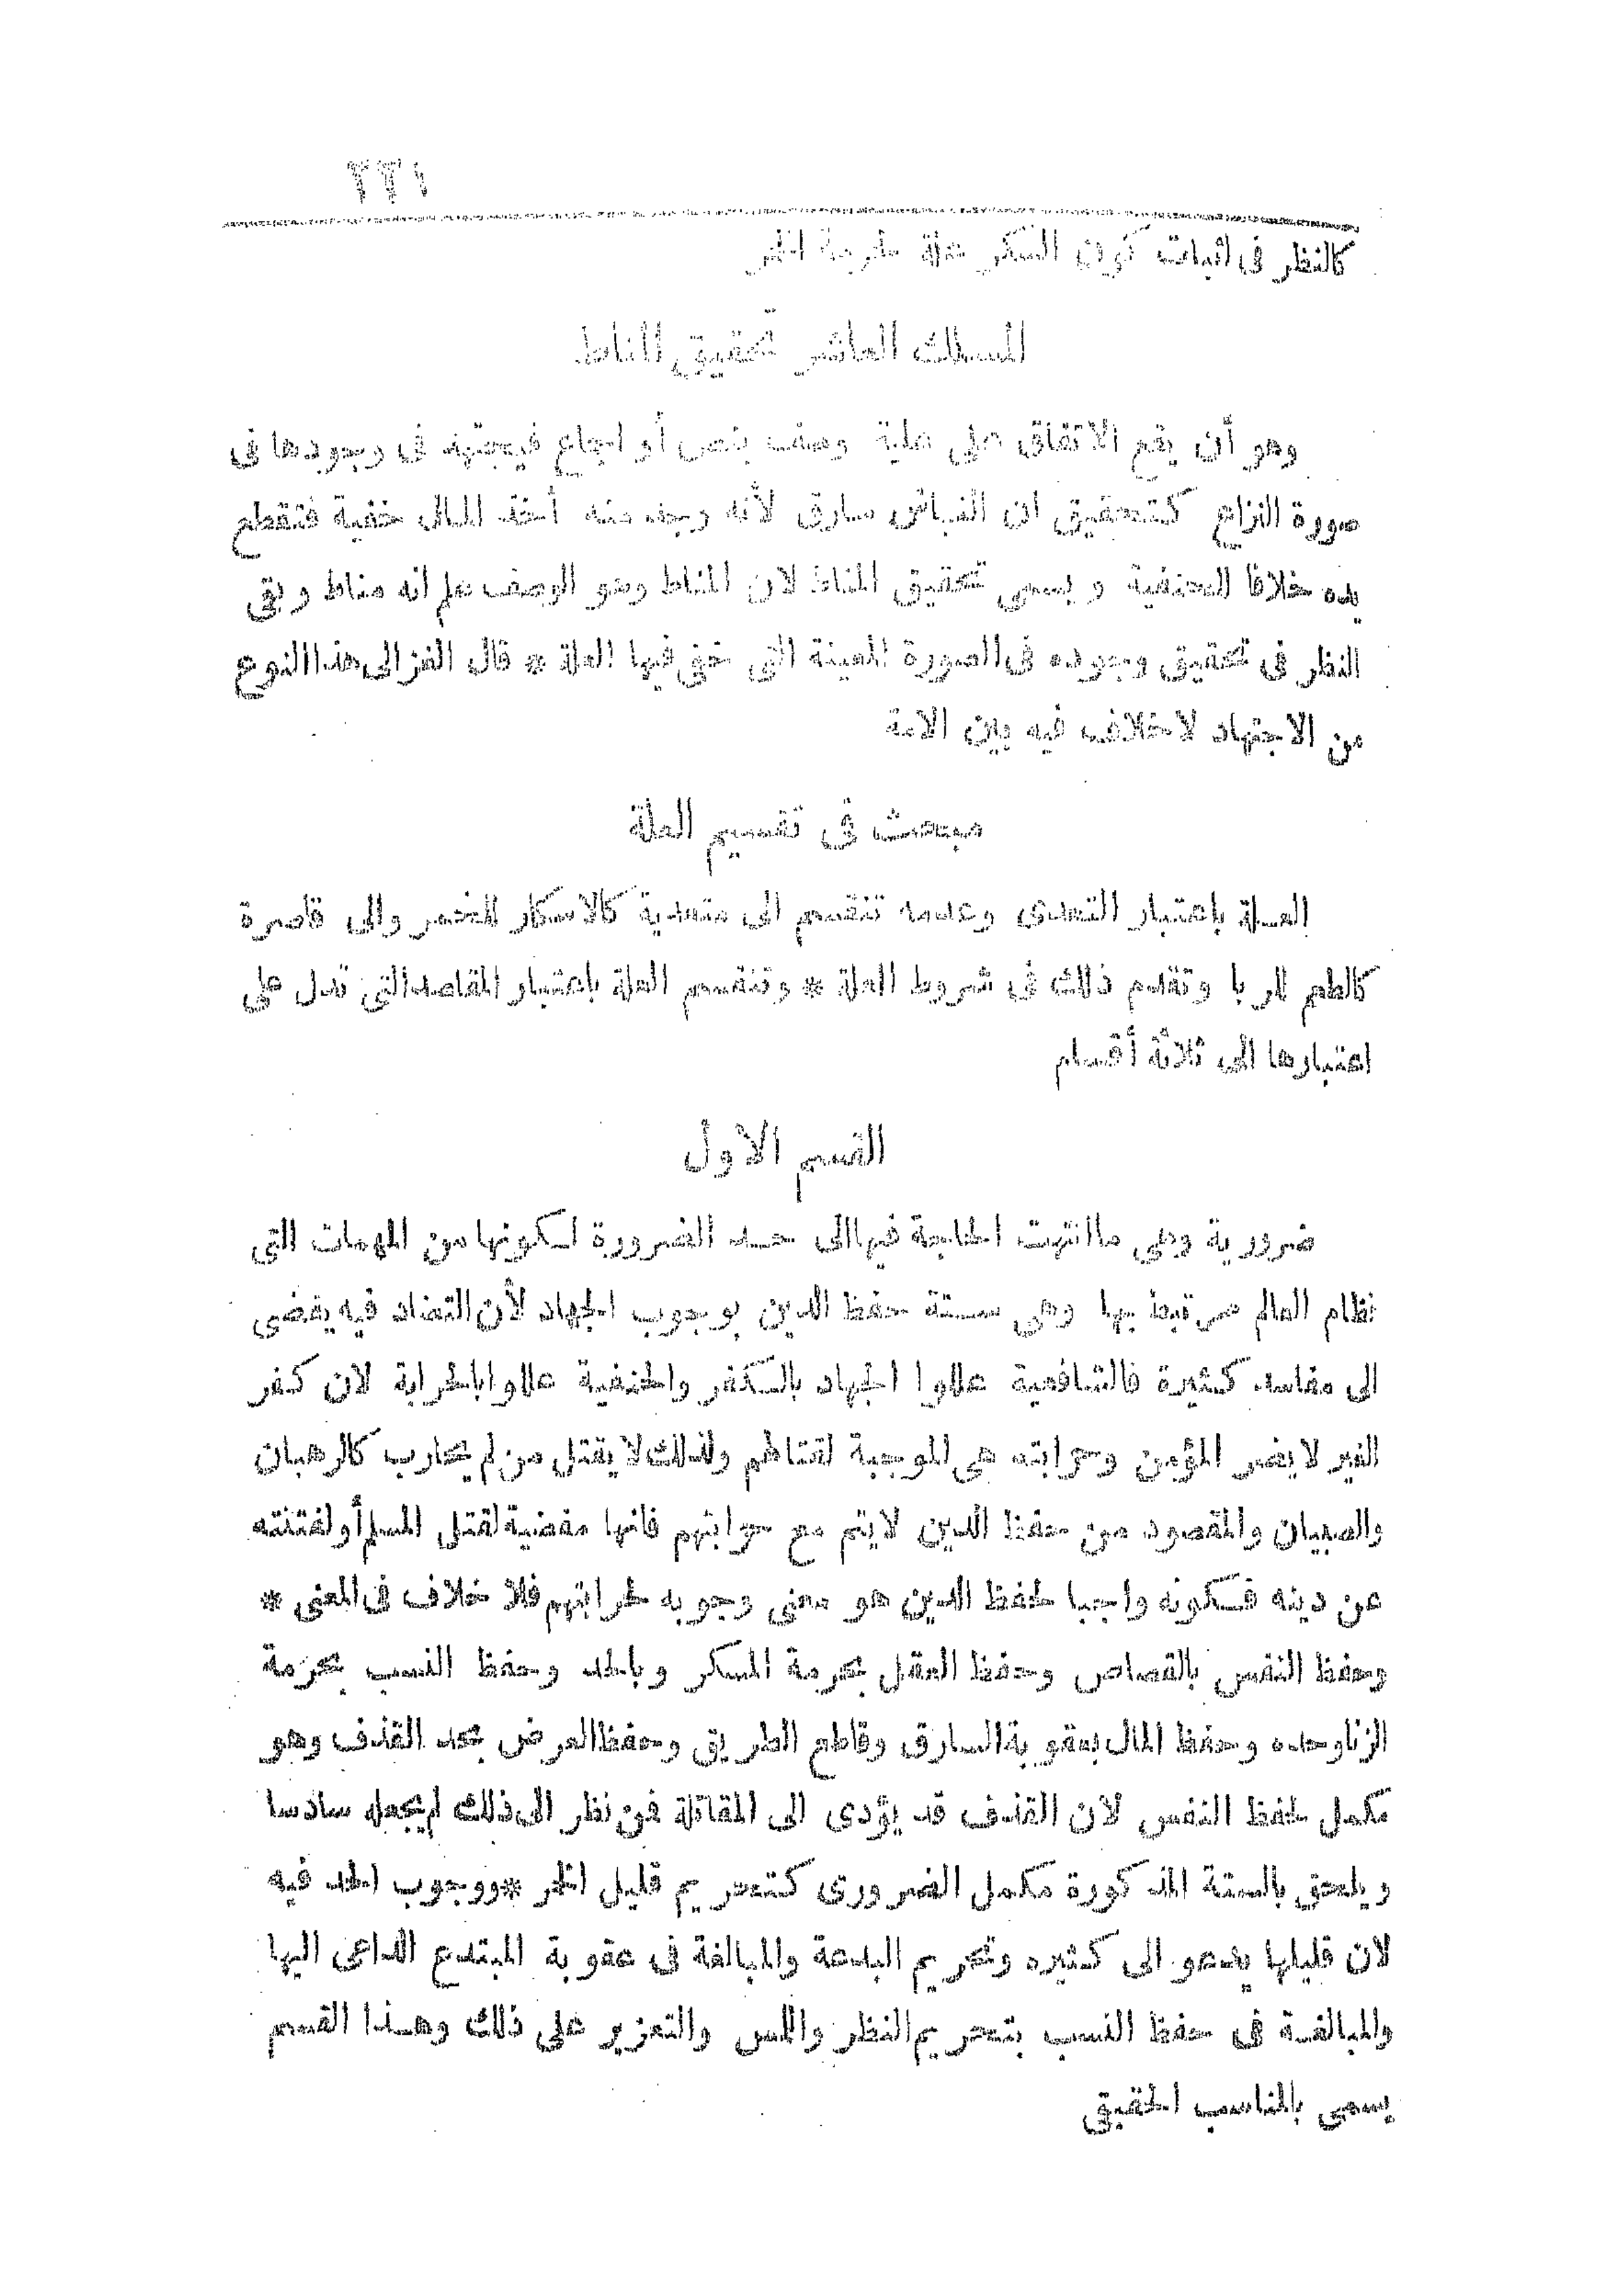 ٢٢١
كالنظر فى اثبات كون السكر علة لحرمة الخمر
المسلك العاشر تحقيق المناط
وهو أن يقع الاتفاق على علية وصف بنص أو اجماع فيجتهد فى وجودها فى
صورة النزاع كتحقيق ان النباش سارق لأنه وجد منه أخذ المال خفية فتقطع
يده خلافا للحنفية ويسمى تحقيق المناط لان المناط وهو الوصف علم انه مناط وبقى
النظر فى تحقيق وجوده فى الصورة المعينة التى خفى فيها العلة * قال الغزالى هذا النوع
من الاجتهاد لاخلاف فيه بين الامة
مبحث فى تقسيم العلة
العلة باعتبار التعدى وعدمه تنقسم الى متعدية كالاسكار للخمر والى قاصرة
كالطعم للربا وتقدم ذلك فى شروط العلة * وتنقسم العلة باعتبار المقاصد التى تدل على
اعتبارها الى ثلاثة أقسام
القسم الاول
ضرورية وهى ما انتهت الحاجة فيها الى حد الضرورة لكونها من المهمات التى
نظام العالم مرتبط بها وهى ستة حفظ الدين بوجوب الجهاد لأن التضاد فيه يفضى
الى مفاسد كثيرة فالشافعية عللوا الجهاد بالكفر والحنفية عللوا بالحرابة لان كفر
الغير لا يضر المؤمن وحرابته هى الموجبة لقتالهم ولذلك لا يقتل من لم يحارب كالرهبان
والصبيان والمقصود من حفظ الدين لا يتم مع حرابتهم فانها مفضية لقتل المسلم أو لفتنته
عن دينه فكونه واجبا لحفظ الدين هو معنى وجوبه لحرابتهم فلا خلاف فى المعنى *
وحفظ النفس بالقصاص وحفظ العقل بحرمة المسكر وبالحد وحفظ النسب بحرمة
الزنا وحده وحفظ المال بعقوبة السارق وقاطع الطريق وحفظ العرض بحد القذف وهو
مكمل لحفظ النفس لان القذف قد يؤدى الى المقاتلة فمن نظر الى ذلك لم يجعله سادسا
ويلحق بالستة المذكورة مكمل الضرورى كتحريم قليل الخمر * ووجوب الحد فيه
لان قليلها يدعو الى كثيره وتحريم البدعة والمبالغة فى عقوبة المبتدع الداعى اليها
والمبالغة فى حفظ النسب بتحريم النظر واللمس والتعزير على ذلك وهذا القسم
يسمى بالمناسب الحقيقى